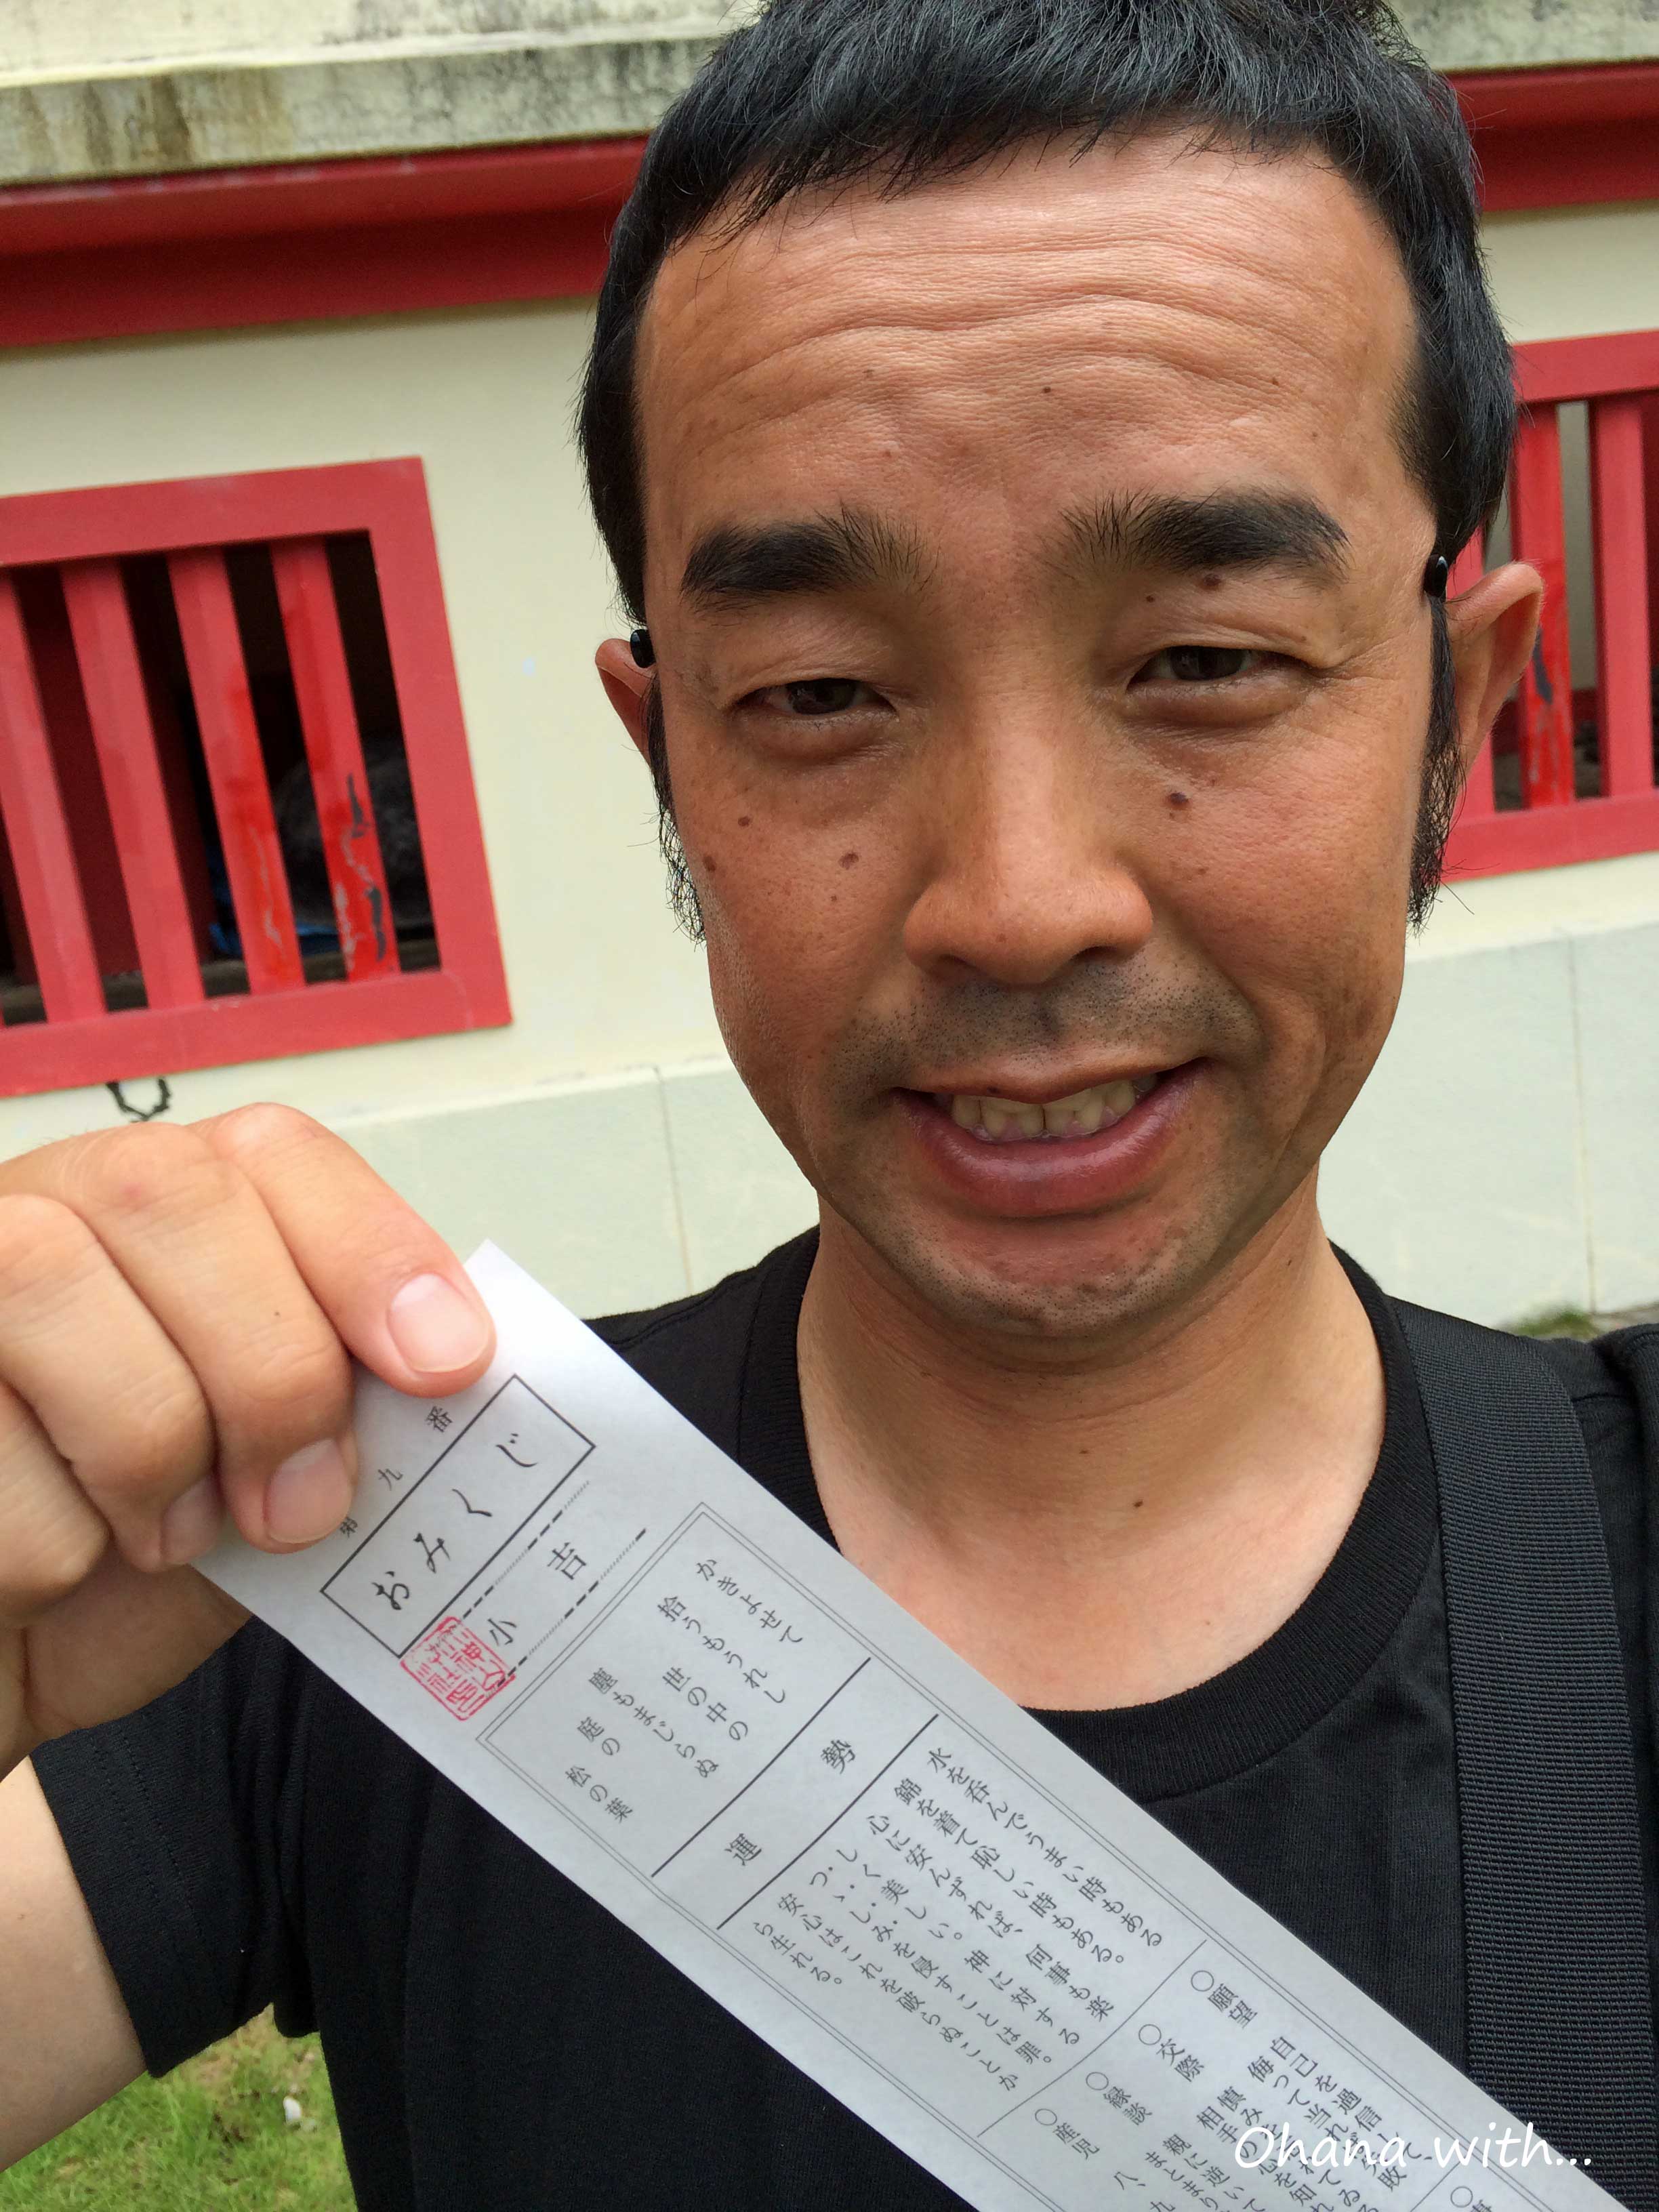 第九番
おみくじ
小吉
かきよせて
拾うもうれし
世の中の
塵もまじらぬ
庭の松の葉
運勢
水を呑んでうまい時もある
錦を着て恥しい時もある。
心に安んずれば、何事も楽
しく美しい。神に対する
つゝしみを侵すことは罪。
安心はこれを破らぬことか
ら生れる。
○願望
自己を過信して、
侮って当れば失敗
○交際
慎み
相手の心を知れ
○縁談
親に逆いて
まとまり
○産児
八、九
Ohana with...